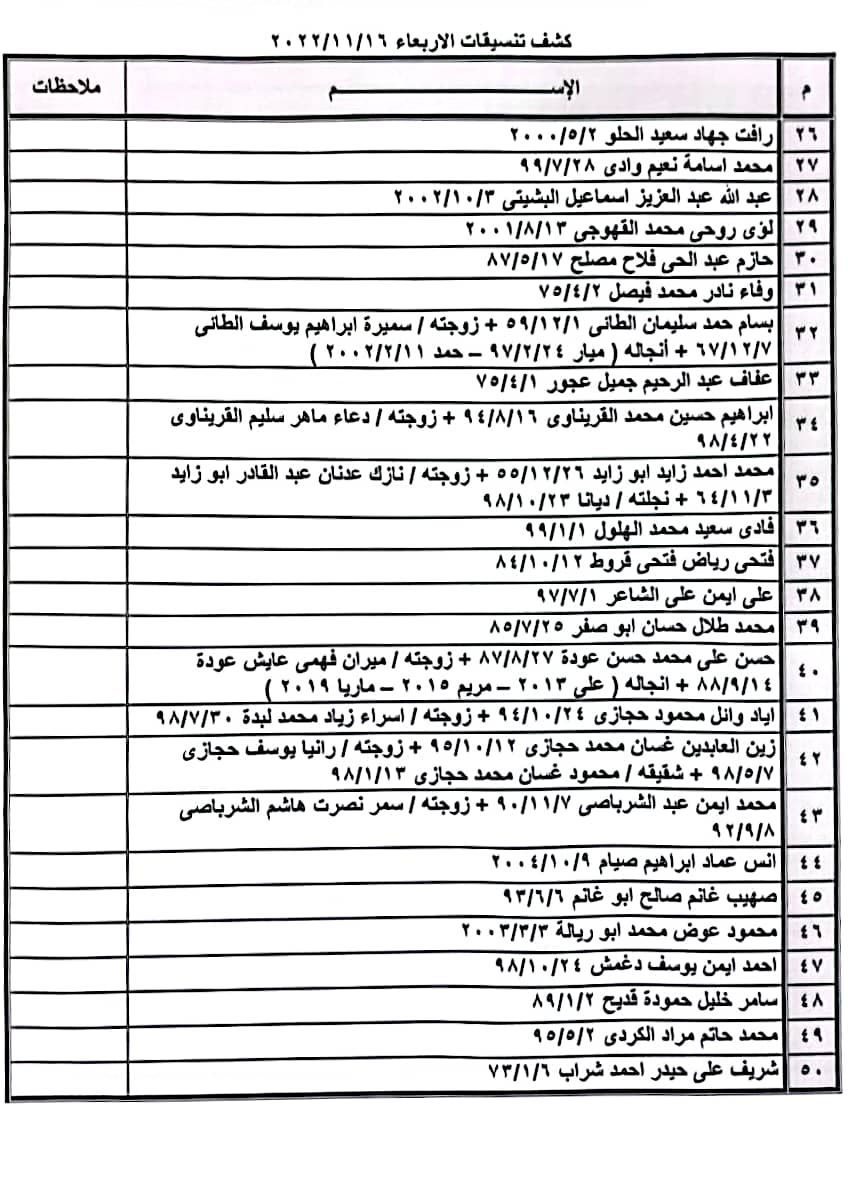 كشف تنسيقات الاربعاء ٢٠٢٢/١١/١٦
م الإســـــــــــم ملاحظات
٢٦ رافت جهاد سعيد الحلو ٢٠٠٠/٥/٢
٢٧ محمد اسامة نعيم وادى ٩٩/٧/٢٨
٢٨ عبد الله عبد العزيز اسماعيل البشيتى ٢٠٠٢/١٠/٣
٢٩ لؤى روحى محمد القهوجى ٢٠٠١/٨/١٣
٣٠ حازم عبد الحى فلاح مصلح ٨٧/٥/١٧
٣١ وفاء نادر محمد فيصل ٧٥/٤/٢
٣٢ بسام حمد سليمان الطائى ٥٩/١٢/١ + زوجته / سميرة ابراهيم يوسف الطائى
٦٧/١٢/٧ + أنجاله ( ميار ٩٧/٢/٢٤ – حمد ٢٠٠٢/٢/١١ )
٣٣ عفاف عبد الرحيم جميل عجور ٧٥/٤/١
٣٤ ابراهيم حسين محمد القريناوى ٩٤/٨/١٦ + زوجته / دعاء ماهر سليم القريناوى
٩٨/٤/٢٢
٣٥ محمد احمد زايد ابو زايد ٥٥/١٢/٢٦ + زوجته / نازك عدنان عبد القادر ابو زايد
٦٤/١١/٣ + نجلته / ديانا ٩٨/١٠/٢٣
٣٦ فادى سعيد محمد الهلول ٩٩/١/١
٣٧ فتحى رياض فتحى قروط ٨٤/١٠/١٢
٣٨ على ايمن على الشاعر ٩٧/٧/١
٣٩ محمد طلال حسان ابو صفر ٨٥/٧/٢٥
٤٠ حسن على محمد حسن عودة ٨٧/٨/٢٧ + زوجته / ميران فهمى عايش عودة
٨٨/٩/١٤ + انجاله ( على ٢٠١٣ – مريم ٢٠١٥ – ماريا ٢٠١٩ )
٤١ اياد وائل محمود حجازى ٩٤/١٠/٢٤ + زوجته / اسراء زياد محمد لبدة ٩٨/٧/٣٠
٤٢ زين العابدين غسان محمد حجازى ٩٥/١٠/١٢ + زوجته / رانيا يوسف حجازى
٩٨/٥/٧ + شقيقه / محمود غسان محمد حجازى ٩٨/١/١٣
٤٣ محمد ايمن عبد الشرباصى ٩٠/١١/٧ + زوجته / سمر نصرت هاشم الشرباصى
٩٢/٩/٨
٤٤ انس عماد ابراهيم صيام ٢٠٠٤/١٠/٩
٤٥ صهيب غانم صالح ابو غانم ٩٣/٦/٦
٤٦ محمود عوض محمد ابو ريالة ٢٠٠٣/٣/٣
٤٧ احمد ايمن يوسف دغمش ٩٨/١٠/٢٤
٤٨ سامر خليل حمودة قديح ٨٩/١/٢
٤٩ محمد حاتم مراد الكردى ٩٥/٥/٢
٥٠ شريف على حيدر احمد شراب ٧٣/١/٦